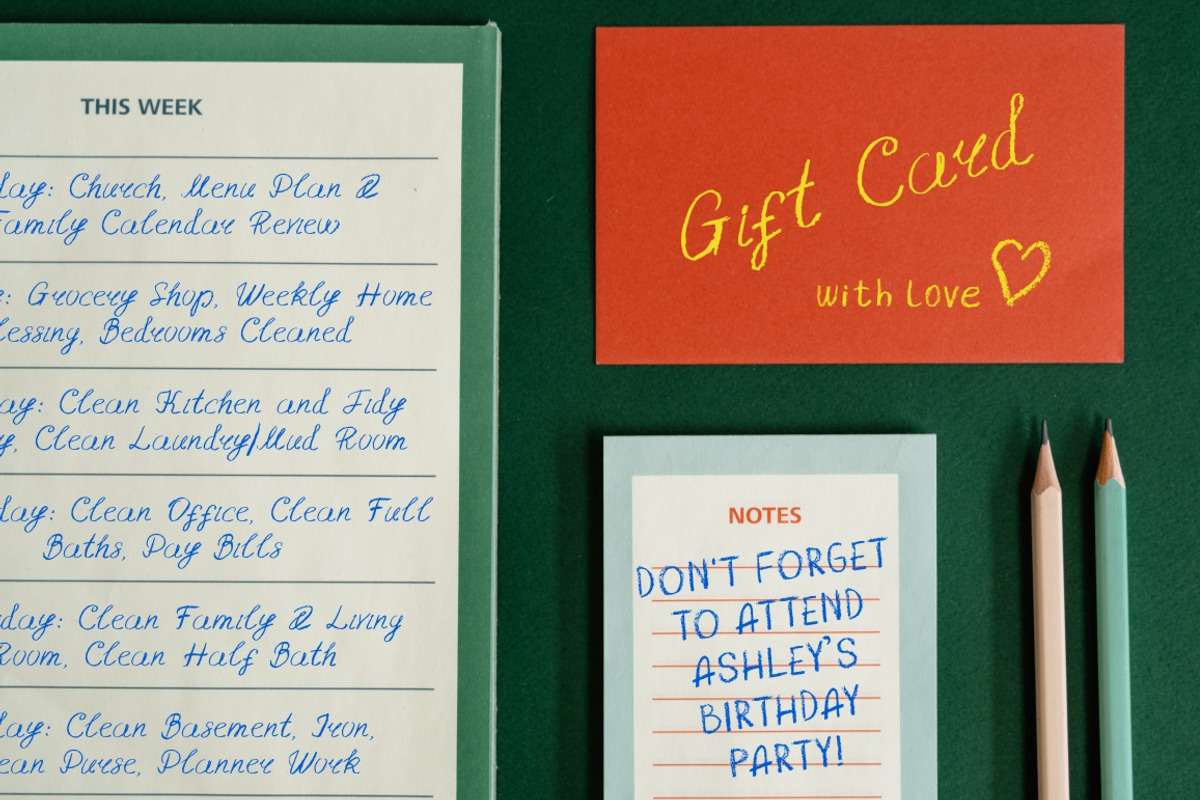 THIS WEEK
day: Church, Menu Plan &
Family Calendar Review
e: Grocery Shop, Weekly Home
lessing, Bedrooms Cleaned
ay: Clean Kitchen and Tidy
y, Clean Laundry/Mud Room
day: Clean Office, Clean Full
Baths, Pay Bills
sday: Clean Family & Living
Room, Clean Half Bath
day: Clean Basement, Iron,
ean Purse, Planner Work
Gift Card
with Love
NOTES
DON'T FORGET
TO ATTEND
ASHLEY'S
BIRTHDAY
PARTY!